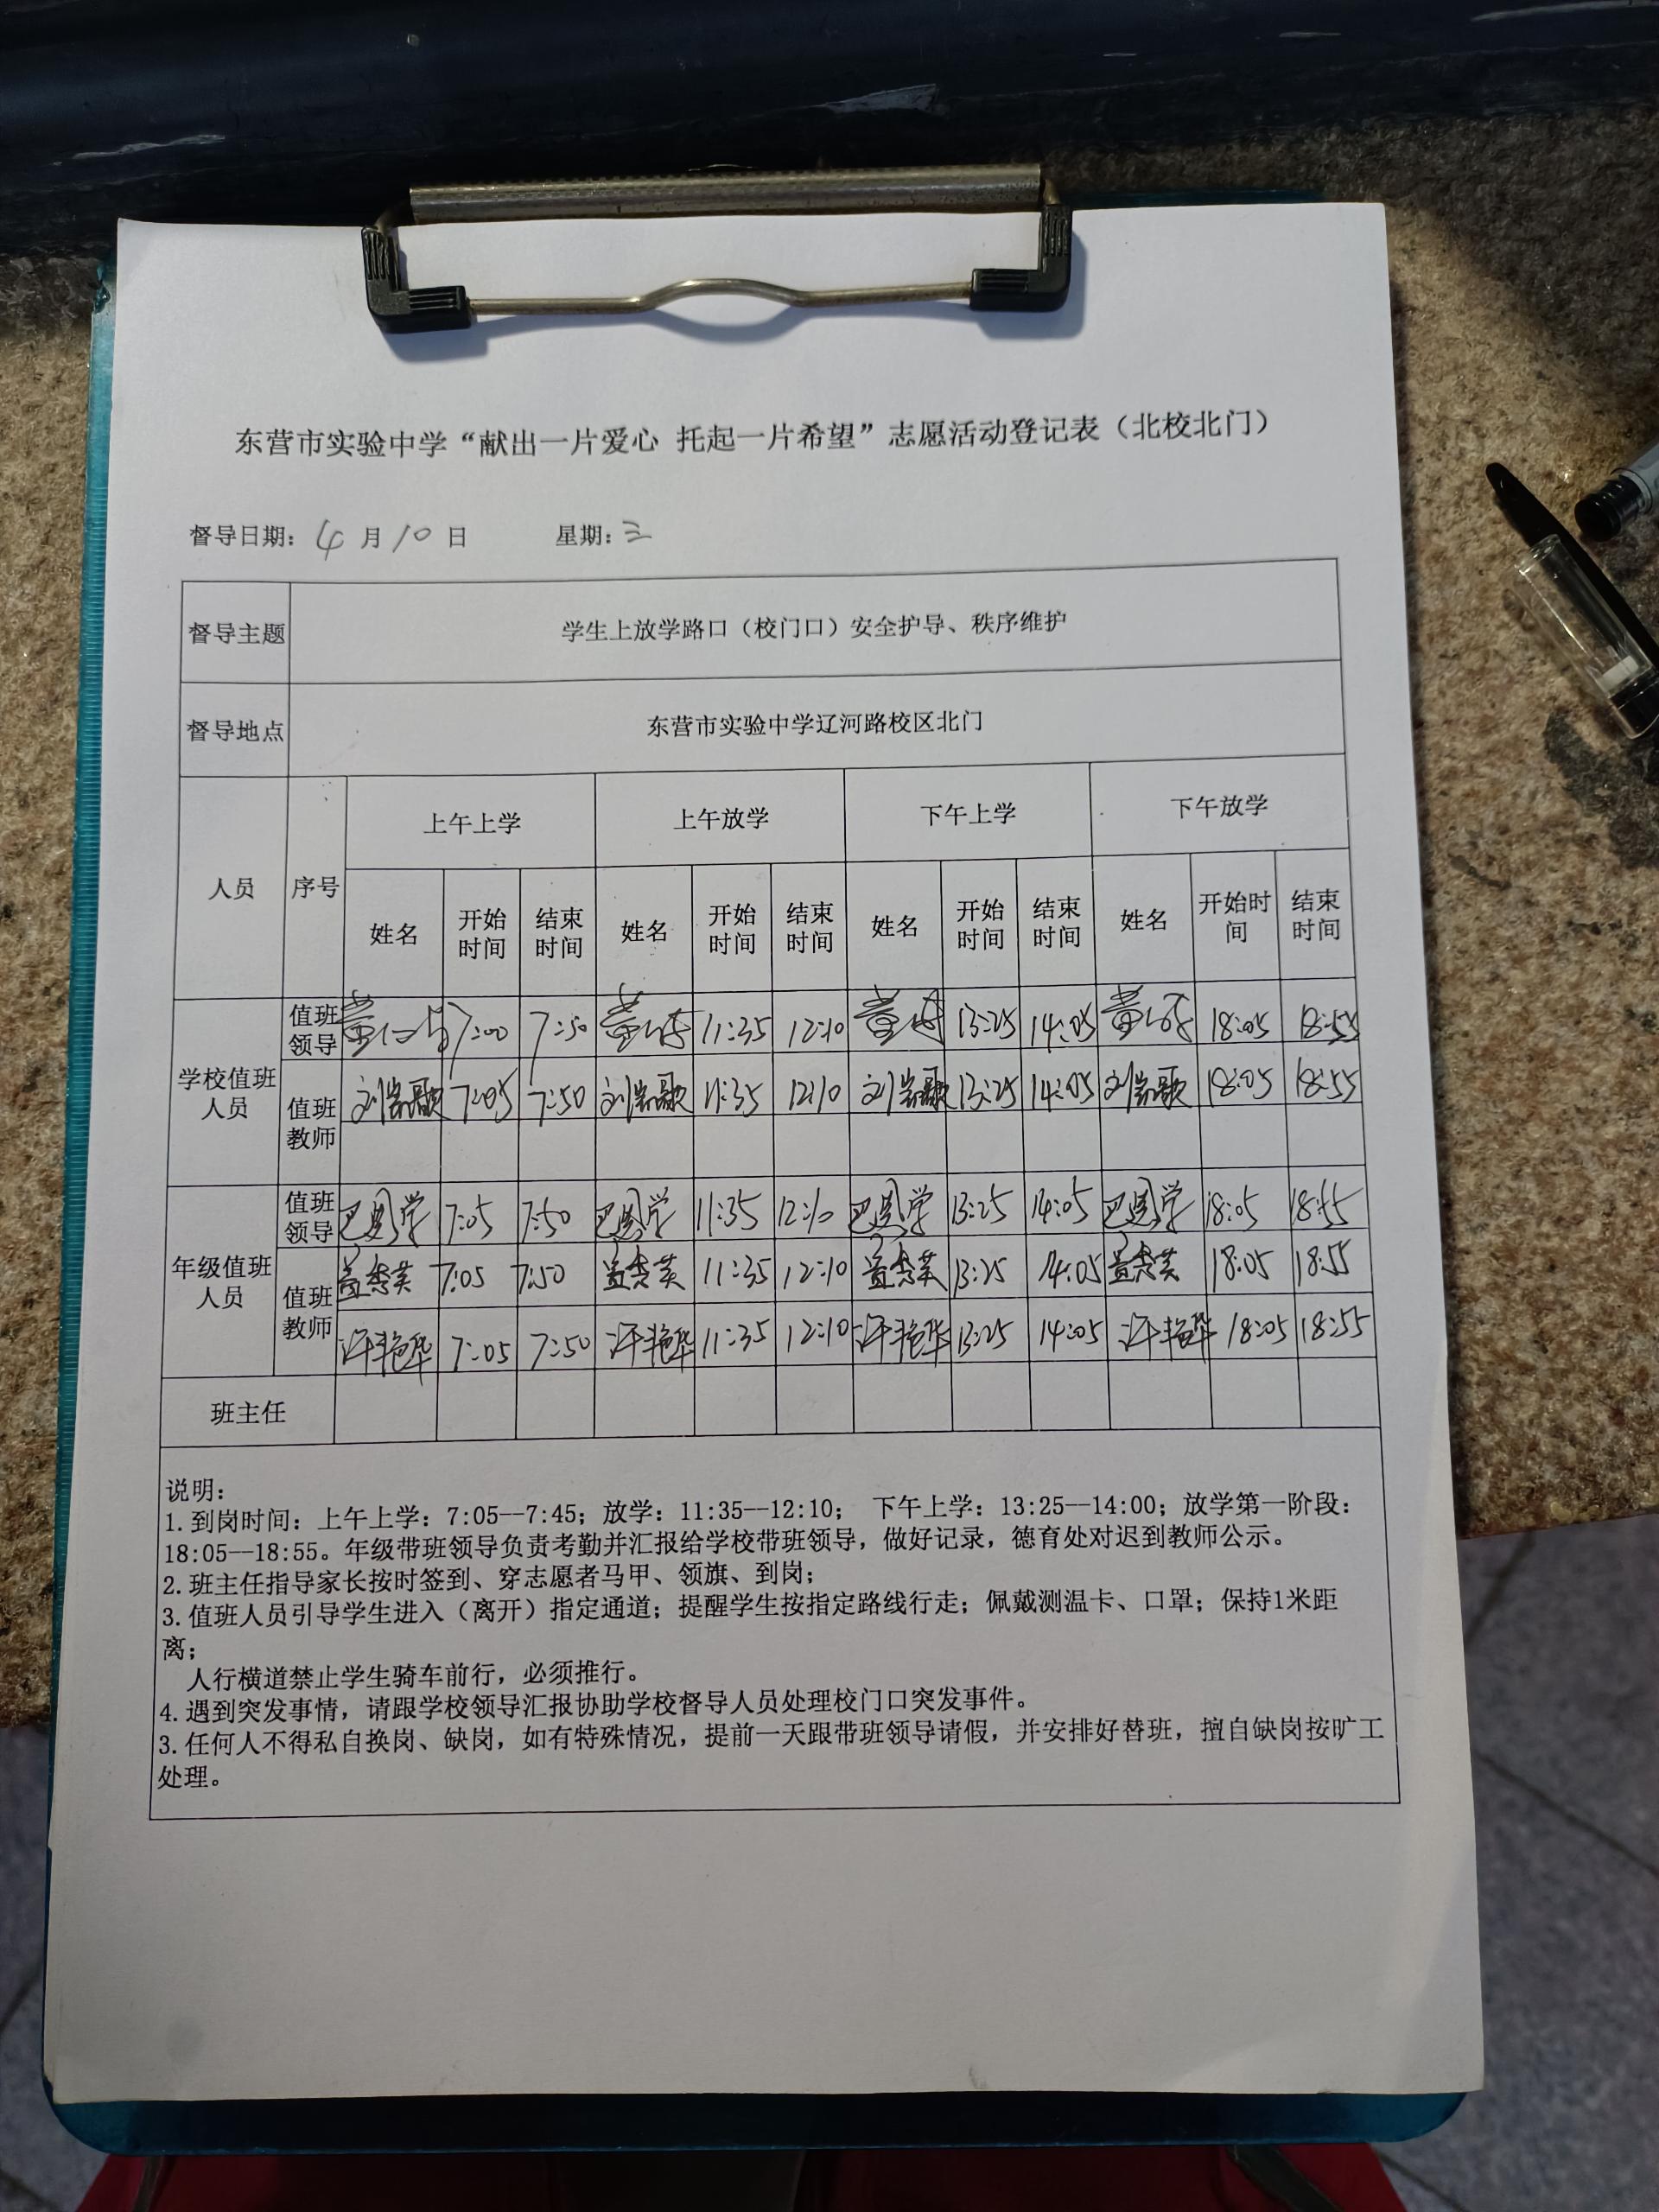 东营市实验中学“献出一片爱心 托起一片希望”志愿活动登记表（北校北门）
督导日期：4月10日 星期：三
督导主题 学生上放学路口（校门口）安全护导、秩序维护
督导地点 东营市实验中学辽河路校区北门
人员 序号 上午上学 上午放学 下午上学 下午放学
姓名 开始时间 结束时间 姓名 开始时间 结束时间 姓名 开始时间 结束时间 姓名 开始时间 结束时间
学校值班人员
值班领导 7:00 7:50 11:35 12:10 13:25 14:05 18:05 18:55
值班教师 7:05 7:50 11:35 12:10 13:25 14:05 18:05 18:55
年级值班人员
值班领导 7:05 7:50 11:35 12:10 13:25 14:05 18:05 18:55
值班教师 7:05 7:50 11:35 12:10 13:25 14:05 18:05 18:55
许艳华 7:05 7:50 许艳华 11:35 12:10 许艳华 13:25 14:05 许艳华 18:05 18:55
班主任
说明：
1.到岗时间：上午上学：7:05--7:45；放学：11:35--12:10； 下午上学：13:25--14:00；放学第一阶段：
18:05--18:55。年级带班领导负责考勤并汇报给学校带班领导，做好记录，德育处对迟到教师公示。
2.班主任指导家长按时签到、穿志愿者马甲、领旗、到岗；
3.值班人员引导学生进入（离开）指定通道；提醒学生按指定路线行走；佩戴测温卡、口罩；保持1米距
离；
人行横道禁止学生骑车前行，必须推行。
4.遇到突发事情，请跟学校领导汇报协助学校督导人员处理校门口突发事件。
3.任何人不得私自换岗、缺岗，如有特殊情况，提前一天跟带班领导请假，并安排好替班，擅自缺岗按旷工
处理。